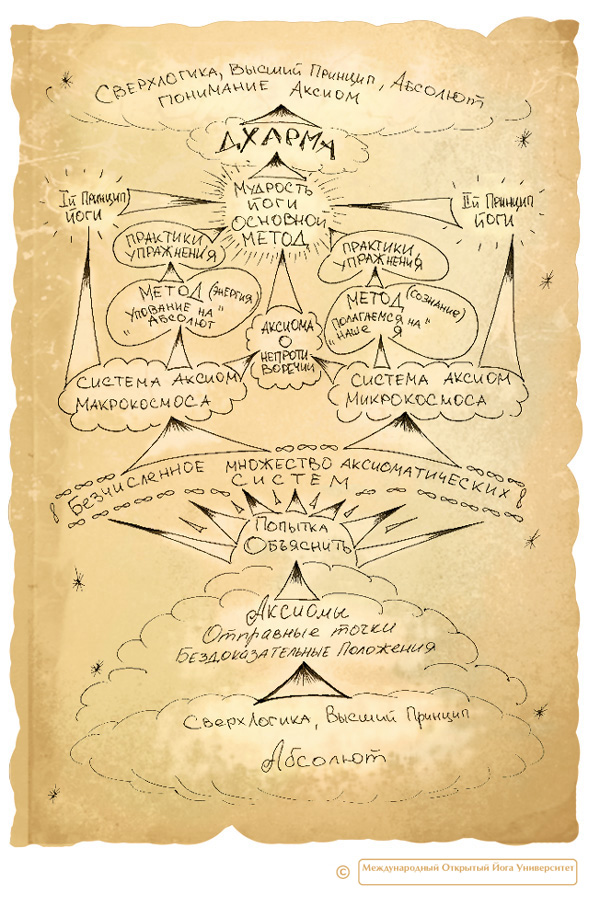 Сверхлогика, Высший Принцип, Абсолют
понимание Аксиом
ДХАРМА
Iй Принцип
Йоги
Мудрость
Йоги
Основной
Метод
IIй Принцип
Йоги
Практики
Упражнения
Практики
Упражнения
Метод (энергия)
Упование на
"Абсолют"
Аксиома
о
непроти
воречии
Метод (сознание)
Полагаемся на
"наше Я"
Система Аксиом
Макрокосмоса
Система Аксиом
Микрокосмоса
Безчисленное множество аксиоматических
систем
Попытка
Объяснить
Аксиомы
Отправные точки
Бездоказательные Положения
Сверхлогика, Высший Принцип
Абсолют
© Международный Открытый Йога Университет